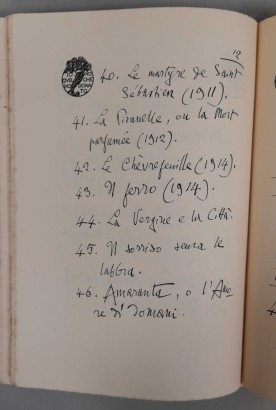 12
40. Le martyre de Saint
Sébastien (1911).
41. La Pisanelle, ou la Mort
parfumée (1912).
42. Le Chèvrefeuille (1914).
43. Il ferro (1914).
44. La Vergine e la Città.
45. Il sorriso senza le
labbra.
46. Amaranta, o l'Amo
re di domani.